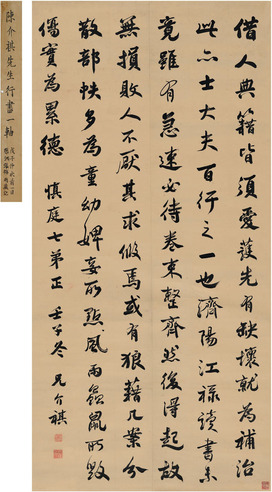 借人典籍皆須愛護先有缺壞就為補治
此亦士大夫百行之一也濟陽江祿讀書未
竟雖有急速必待卷束整齊然後得起故
無損敗人不厭其求假焉或有狼藉几案分
散部帙多為童幼婢妾所點風雨蟲鼠所毀
傷實為累德 慎庭七弟正 壬子冬 兄介祺
陳介祺先生行書一軸